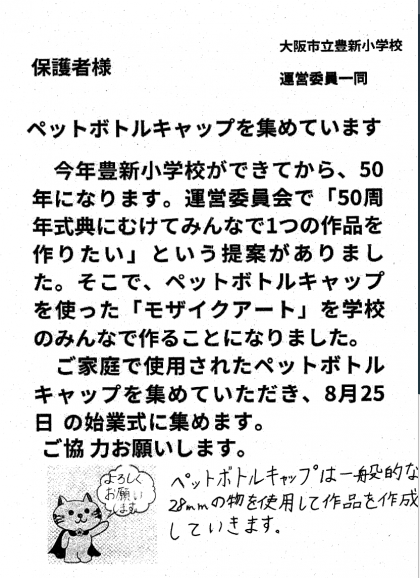 大阪市立豊新小学校
保護者様
運営委員一同
ペットボトルキャップを集めています
今年豊新小学校ができてから、50
年になります。運営委員会で「50周
年式典にむけてみんなで1つの作品を
作りたい」という提案がありまし
た。そこで、ペットボトルキャップ
を使った「モザイクアート」を学校
のみんなで作ることになりました。
ご家庭で使用されたペットボトル
キャップを集めていただき、8月25
日 の始業式に集めます。
ご協 力お願いします。
よろしく
お願い
します
ペットボトルキャップは一般的な
28mmの物を使用して作品を作成
していきます。